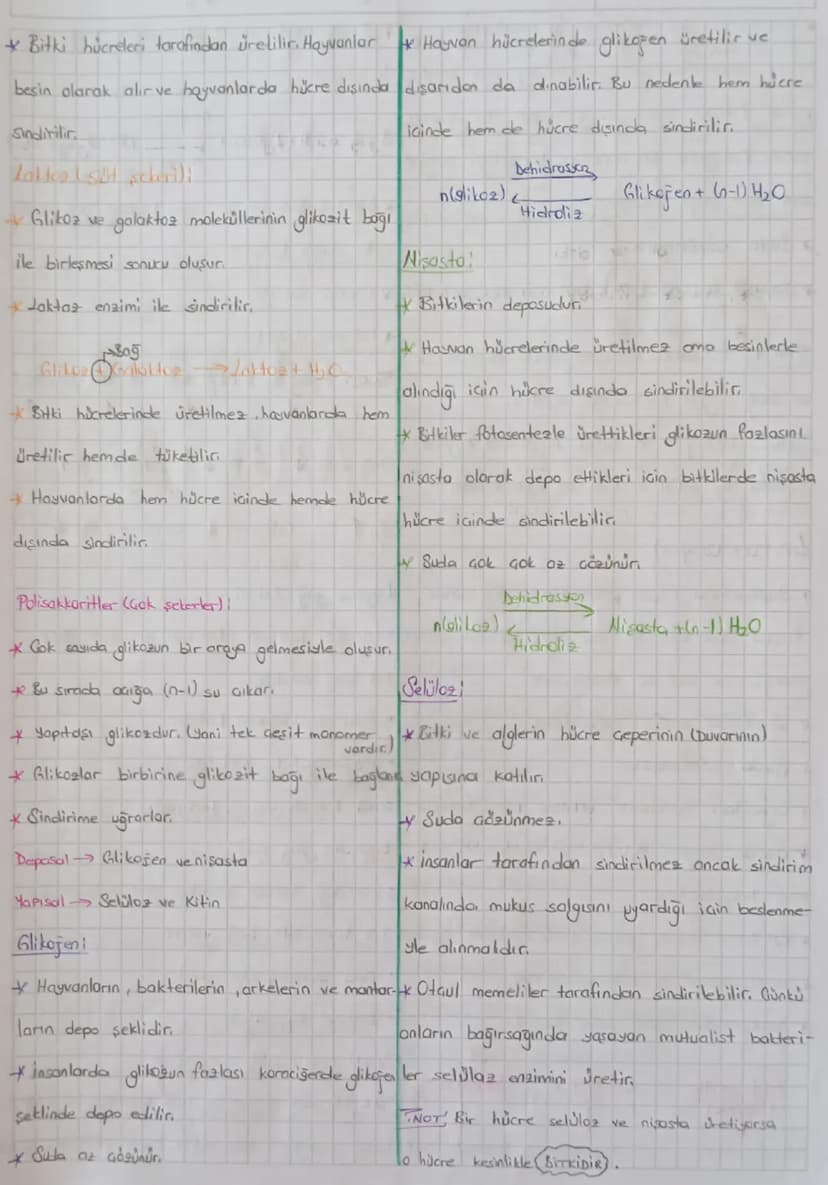 * Bitki hücreleri tarafından üretilir. Hayvanlar
besin olarak alır ve hayvanlarda hücre dışında
sindirilir.
Laktoz (süt şekeri):
* Glikoz ve galaktoz moleküllerinin glikozit bağı
ile birleşmesi sonucu oluşur.
* Laktaz enzimi ile sindirilir.
→Bağ
Glikoz + Galaktoz → Laktoz + H₂O
* Bitki hücrelerinde üretilmez, hayvanlarda hem
üretilir hemde tüketilir.
* Hayvanlarda hem hücre içinde hemde hücre
dışında sindirilir.
Polisakkaritler (Çok şekerler):
* Çok sayıda glikozun bir araya gelmesiyle oluşur.
* Bu sırada açığa (n-1) su çıkar.
* Yapıtaşı glikozdur. (yani tek çeşit monomer
vardır.)
* Glikozlar birbirine glikozit bağı ile bağlanır
* Sindirime uğrarlar.
Depasal → Glikojen ve nişasta
Yapısal → Selüloz ve Kitin
Glikojen:
* Hayvanların, bakterilerin, arkelerin ve mantar-
ların depo şeklidir.
* insanlarda glikozun fazlası karaciğerde glikojen
şeklinde depo edilir.
* Suda az çözünür.
* Hayvan hücrelerinde glikojen üretilir ve
dışarıdan da alınabilir. Bu nedenle hem hücre
içinde hem de hücre dışında sindirilir.
Dehidrasyon
n(glikoz) ⇌ Glikojen + (n-1) H₂O
Hidroliz
Nişasta:
* Bitkilerin deposudur.
* Hayvan hücrelerinde üretilmez ama besinlerle
alındığı için hücre dışında sindirilebilir.
* Bitkiler fotosentezle ürettikleri glikozun fazlasını
nişasta olarak depo ettikleri için bitkilerde nişasta
hücre içinde sindirilebilir.
* Suda çok çok az çözünür.
Dehidrasyon
n(glikoz) ⇌ Nişasta + (n-1) H₂O
Hidroliz
Selüloz:
* Bitki ve alglerin hücre çeperinin (Duvarının)
yapısına katılır.
* Suda çözünmez.
* insanlar tarafından sindirilmez ancak sindirim
kanalında mukus salgısını uyardığı için beslenme-
yle alınmalıdır.
* Otçul memeliler tarafından sindirilebilir. Çünkü
onların bağırsağında yaşayan mutualist bakteri-
ler selülaz enzimini üretir.
NOT: Bir hücre selüloz ve nişasta üretiyorsa
o hücre kesinlikle BİTKİDİR.